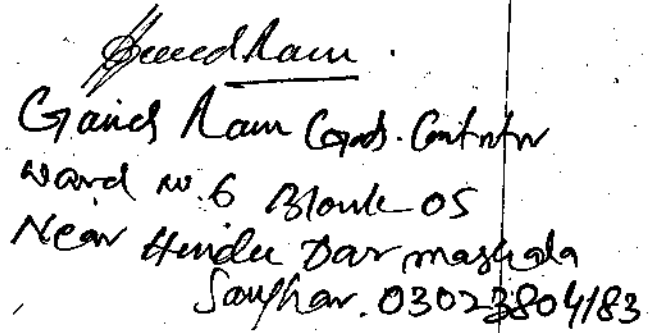 Ram
Gaind Ram Govt. Contrtr
Ward No. 6 Block 05
Near Hindu Dar mashala
Sanghar. 03023804183